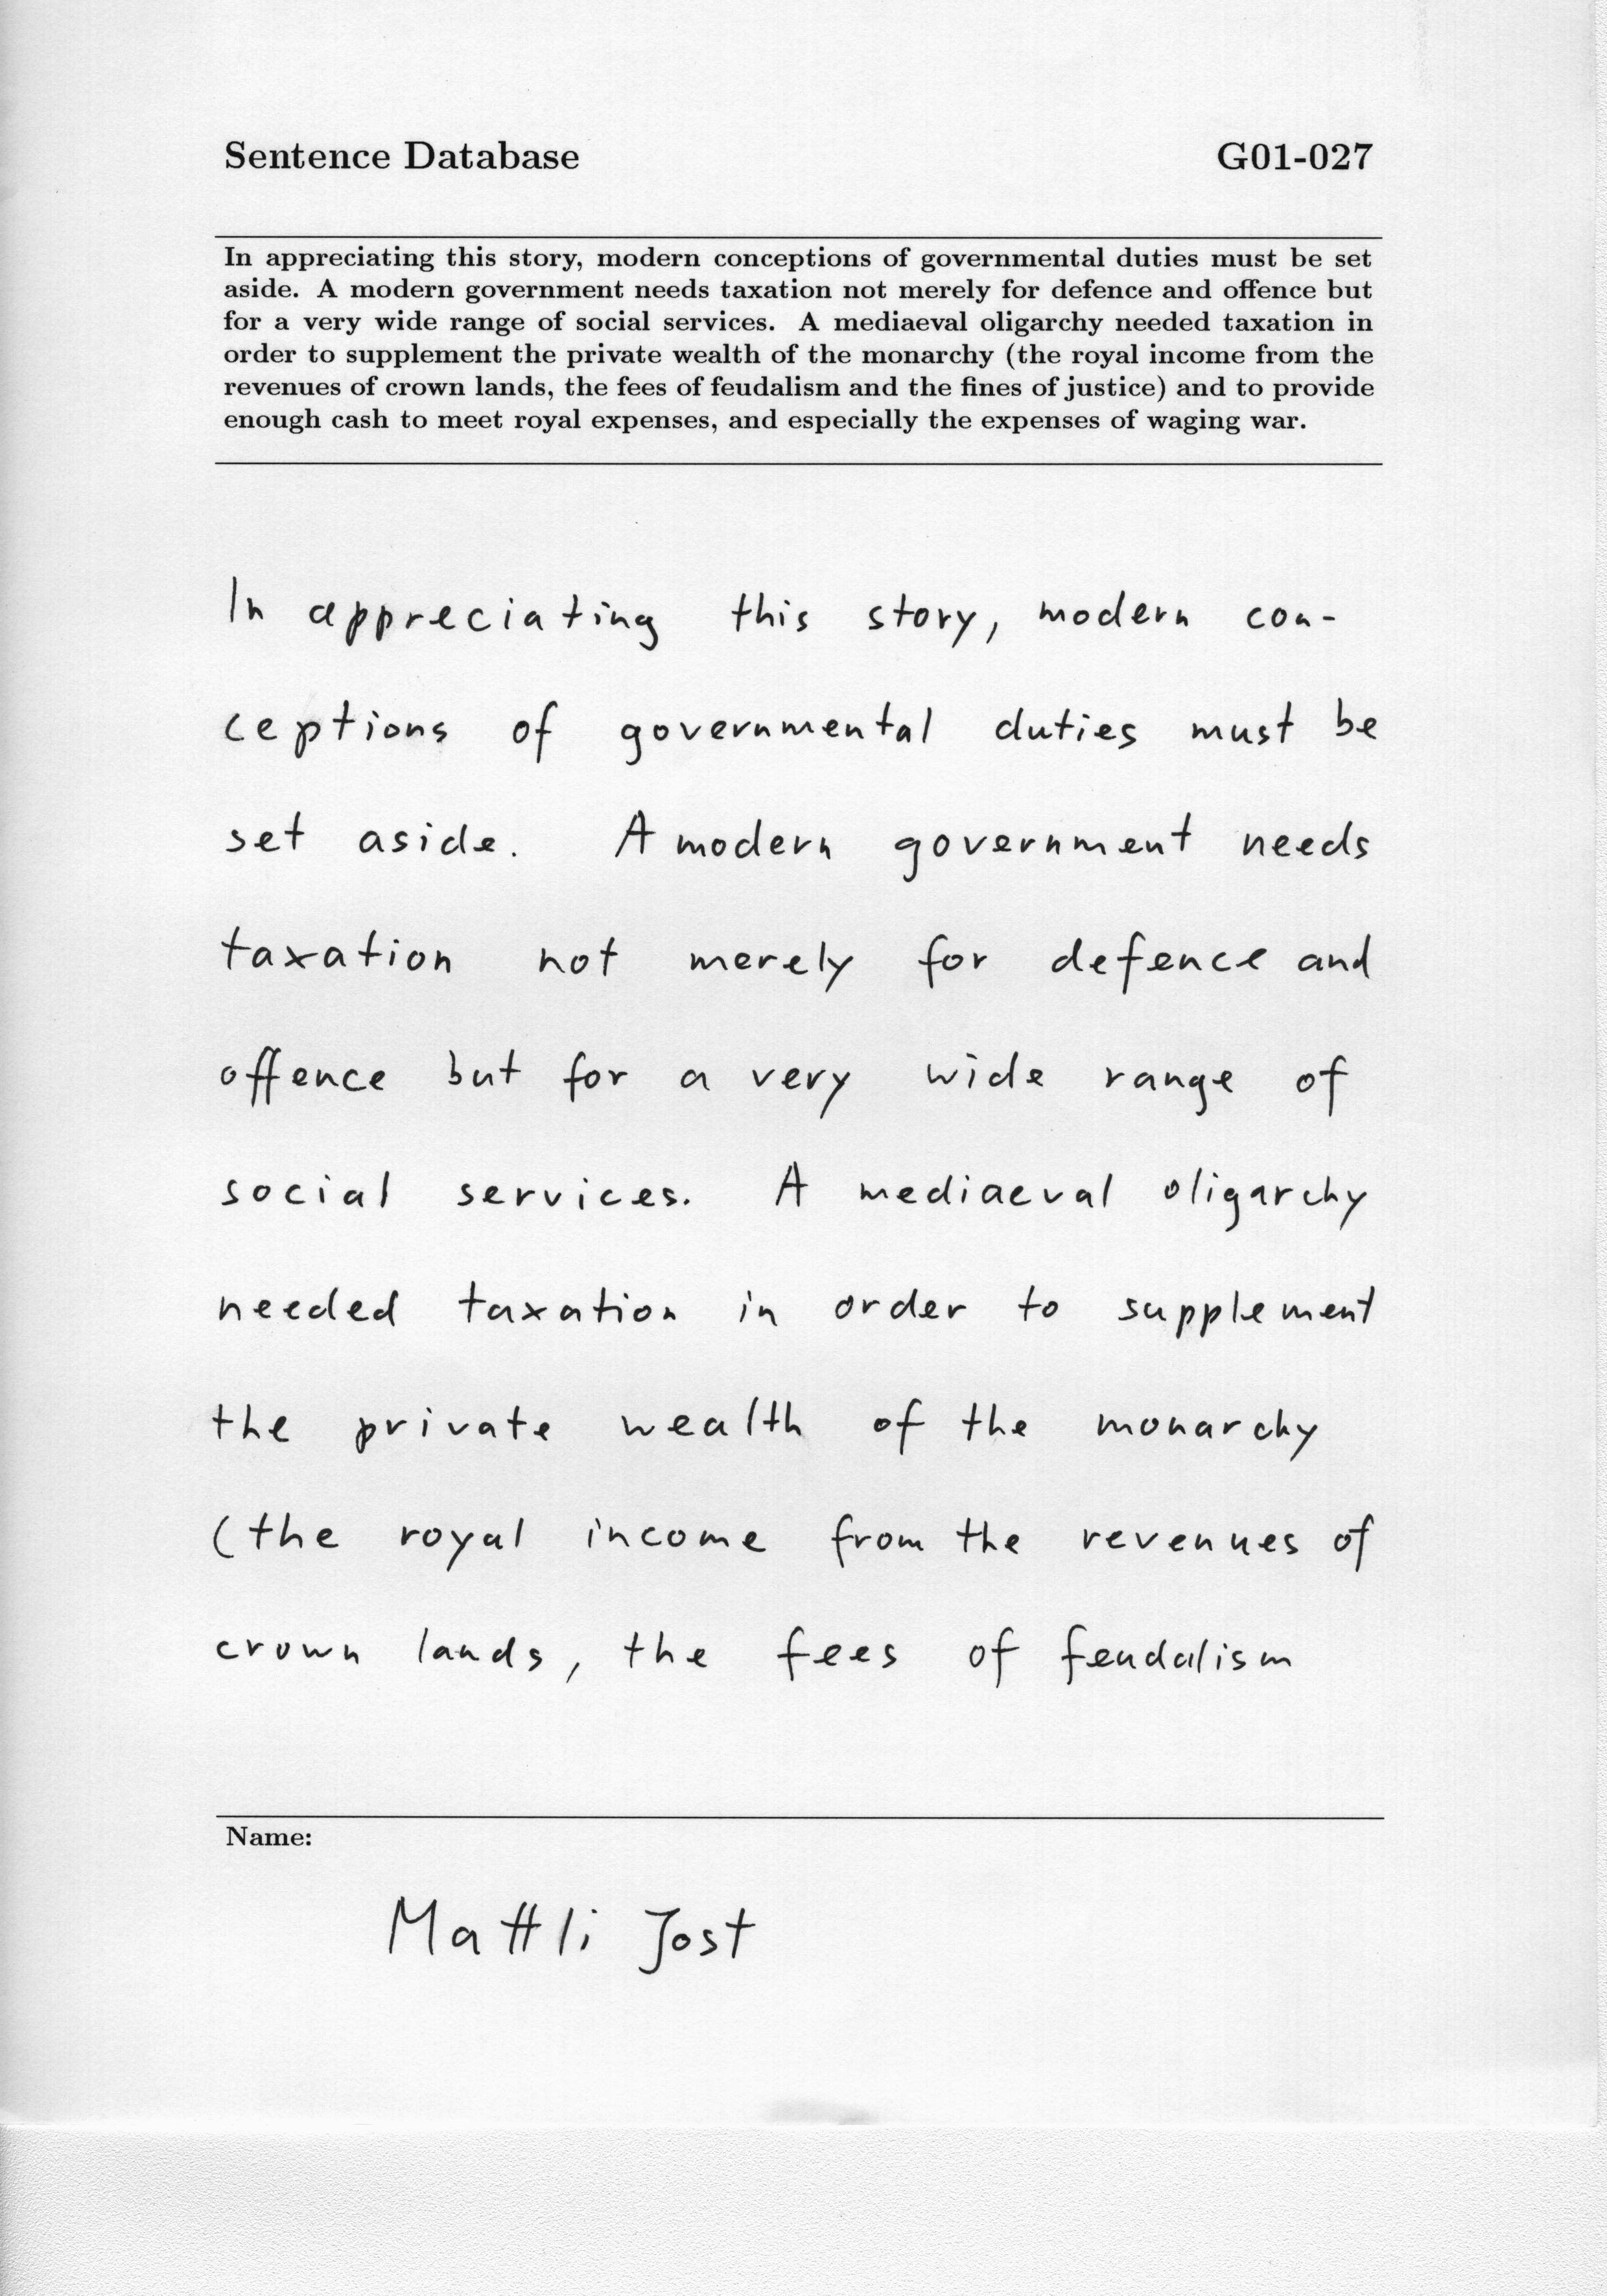 Sentence Database G01-027
In appreciating this story, modern conceptions of governmental duties must be set
aside. A modern government needs taxation not merely for defence and offence but
for a very wide range of social services. A mediaeval oligarchy needed taxation in
order to supplement the private wealth of the monarchy (the royal income from the
revenues of crown lands, the fees of feudalism and the fines of justice) and to provide
enough cash to meet royal expenses, and especially the expenses of waging war.
In appreciating this story, modern con-
ceptions of governmental duties must be
set aside. A modern government needs
taxation not merely for defence and
offence but for a very wide range of
social services. A mediaeval oligarchy
needed taxation in order to supplement
the private wealth of the monarchy
(the royal income from the revenues of
crown lands, the fees of feudalism
Name:
Mattli Jost